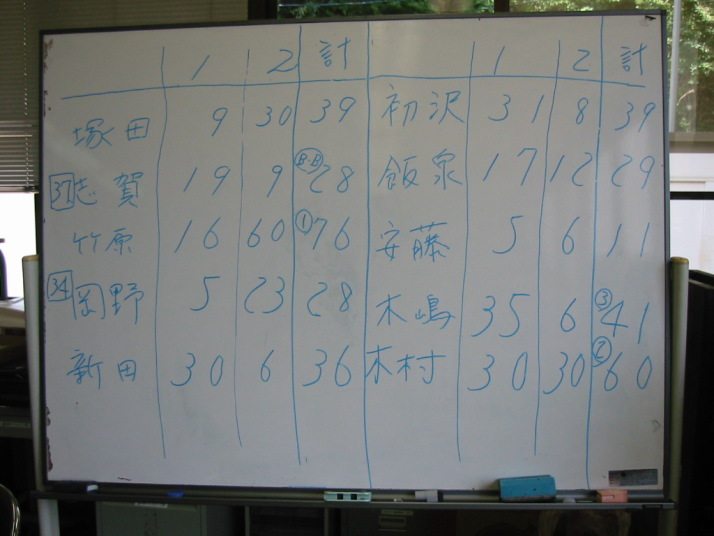 1 2 計 1 2 計
塚田 9 30 39 初沢 31 8 39
37 志賀 19 9 B.B 28 飯泉 17 12 29
竹原 16 60 ① 76 安藤 5 6 11
34 岡野 5 23 28 木嶋 35 6 ③ 41
新田 30 6 36 木村 30 30 ② 60